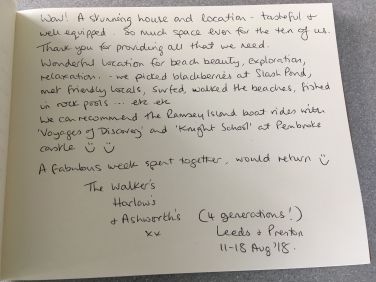 Wow! A stunning house and location - tasteful &
well equipped. So much space even for the ten of us.
Thank you for providing all that we need.
Wonderful location for beach beauty, exploration,
relaxation - we picked blackberries at Slash Pond,
met friendly locals, surfed, walked the beaches, fished
in rock pools ... etc etc
We can recommend the Ramsey Island boat rides with
'Voyages of Discovery' and 'Knight School' at Pembroke
castle
A fabulous week spent together, would return
The Walker's
Harlows
& Ashworth's (4 generations!)
xx Leeds & Preston
11-18 Aug '18.